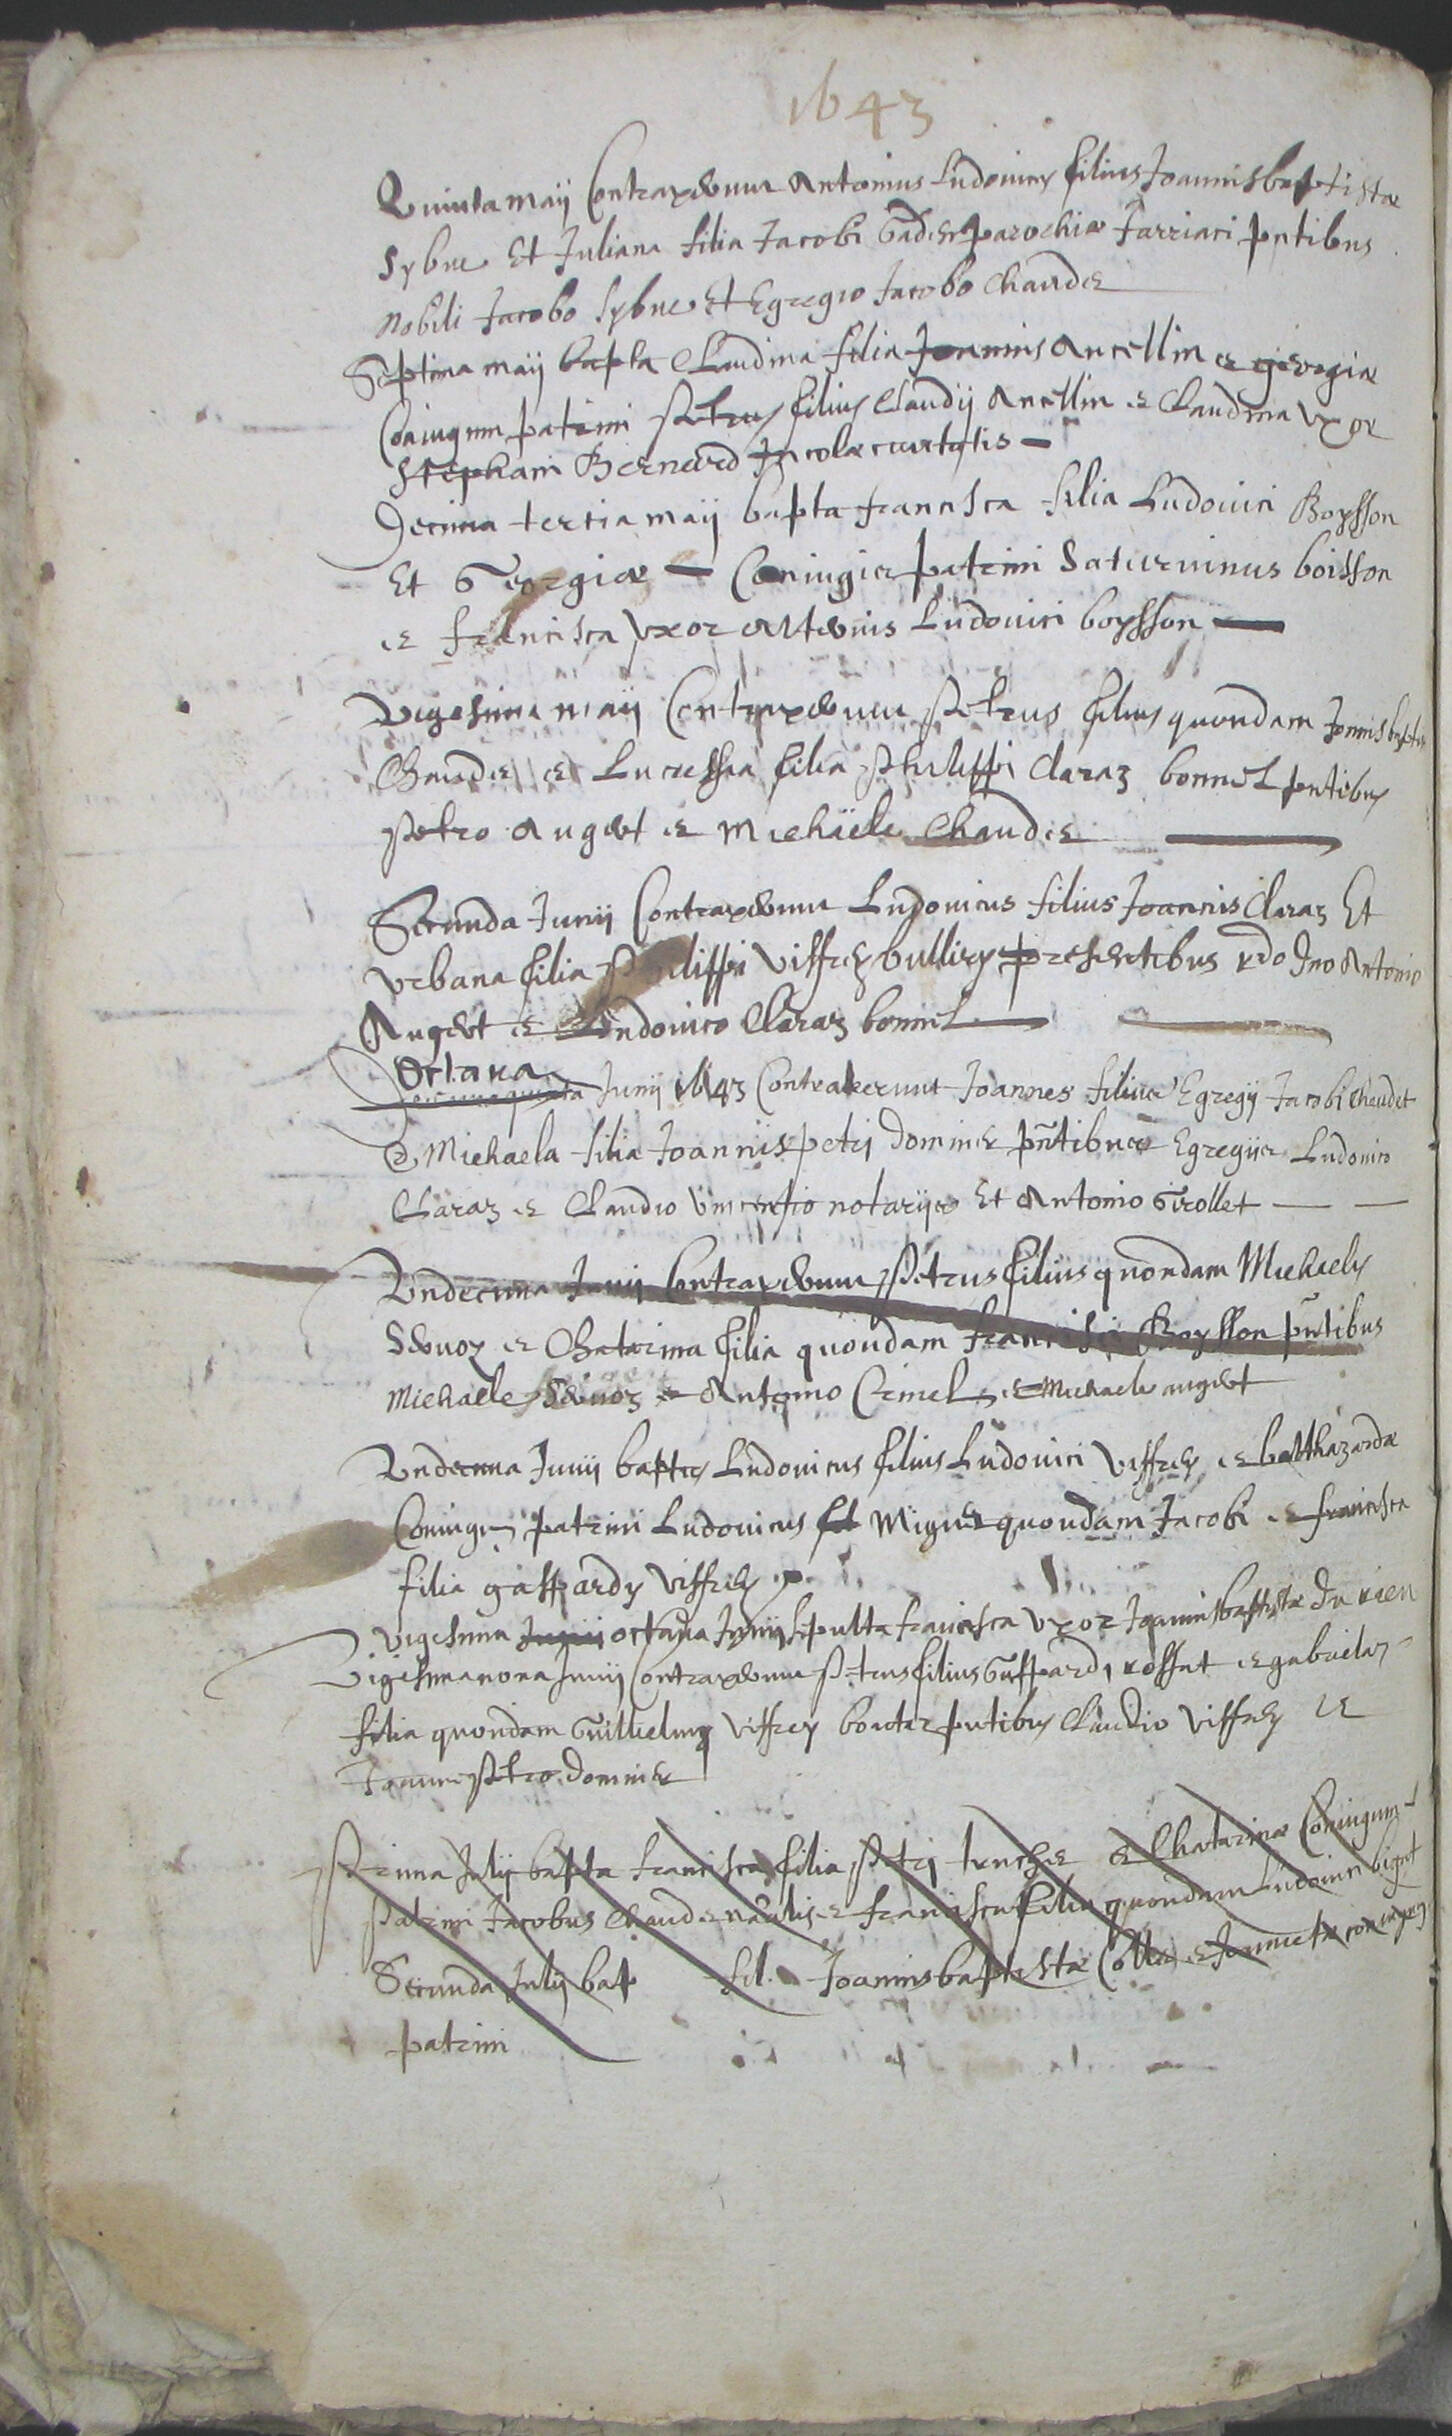 1643
Quinta maij Contraxerunt Antonius Ludovicus filius Joannisbaptistæ
Sybue Et Juliana filia Jacobi parochiæ Jarriaci pntibus
nobili Jacobo Sybue Et Egregio Jacobo Chaudet
Septima maij bapta Claudina filia Joannis Ancellin et georgiæ
Coniugum patrini Petrus filius Claudij Ancellin et Claudina Vxor
Stephani Bernard Incolæ
Decima tertia maij bapta francisca filia Ludovici Boysson
Et Georgiæ — Coniugum patrini Saturninus boisson
et francisca Vxor alterius Ludovici boysson —
Vigesima maij Contraxerunt Petrus filius quondam Joannisbaptistæ
Chaudet et Lucressia filia Philippi Claraz bonnel pntibus
Petro Augert et Michaele Chaudet
Secunda Junij Contraxerunt Ludovicus filius Joannis Claraz Et
Vrbana filia Philippi Viffrey presentibus rdo dno Antonio
Augert et Ludovico Claraz bonnel
Octava
Junij 1643 Contraxerunt Joannes filius Egregij Jacobi Chaudet
et Michaela filia Joannis petri dominet pntibus Egregijs Ludovico
Claraz et Claudio Vincentio notarijs Et Antonio Girollet — —
Vndecima Junij Contraxerunt Petrus filius quondam Michaelis
et Chatarina filia quondam francisci Boysson pntibus
Michaele et Antonio et Michaele augert
Vndecima Junij baptus Ludovicus filius Ludovici Viffrey et balthazardæ
Coniugum patrini Ludovicus quondam Jacobi et francisca
filia gaspardi Viffrey
Vigesima octava Junij sepulta francisca Vxor Joannisbaptistæ du rieu
Vigesimanona Junij Contraxerunt Petrus filius Gaspardi rossat et gabriela
filia quondam Guillielmi Viffrey pntibus Claudio Viffrey et
Joanne Petro dominet
Prima Julij bapta francisca filia Petri et Chatarinæ Coniugum
patrini Jacobus Chaudet et francisca filia quondam Ludovici
Secunda Julij bap fil. Joannisbaptistæ et coniugum
patrini